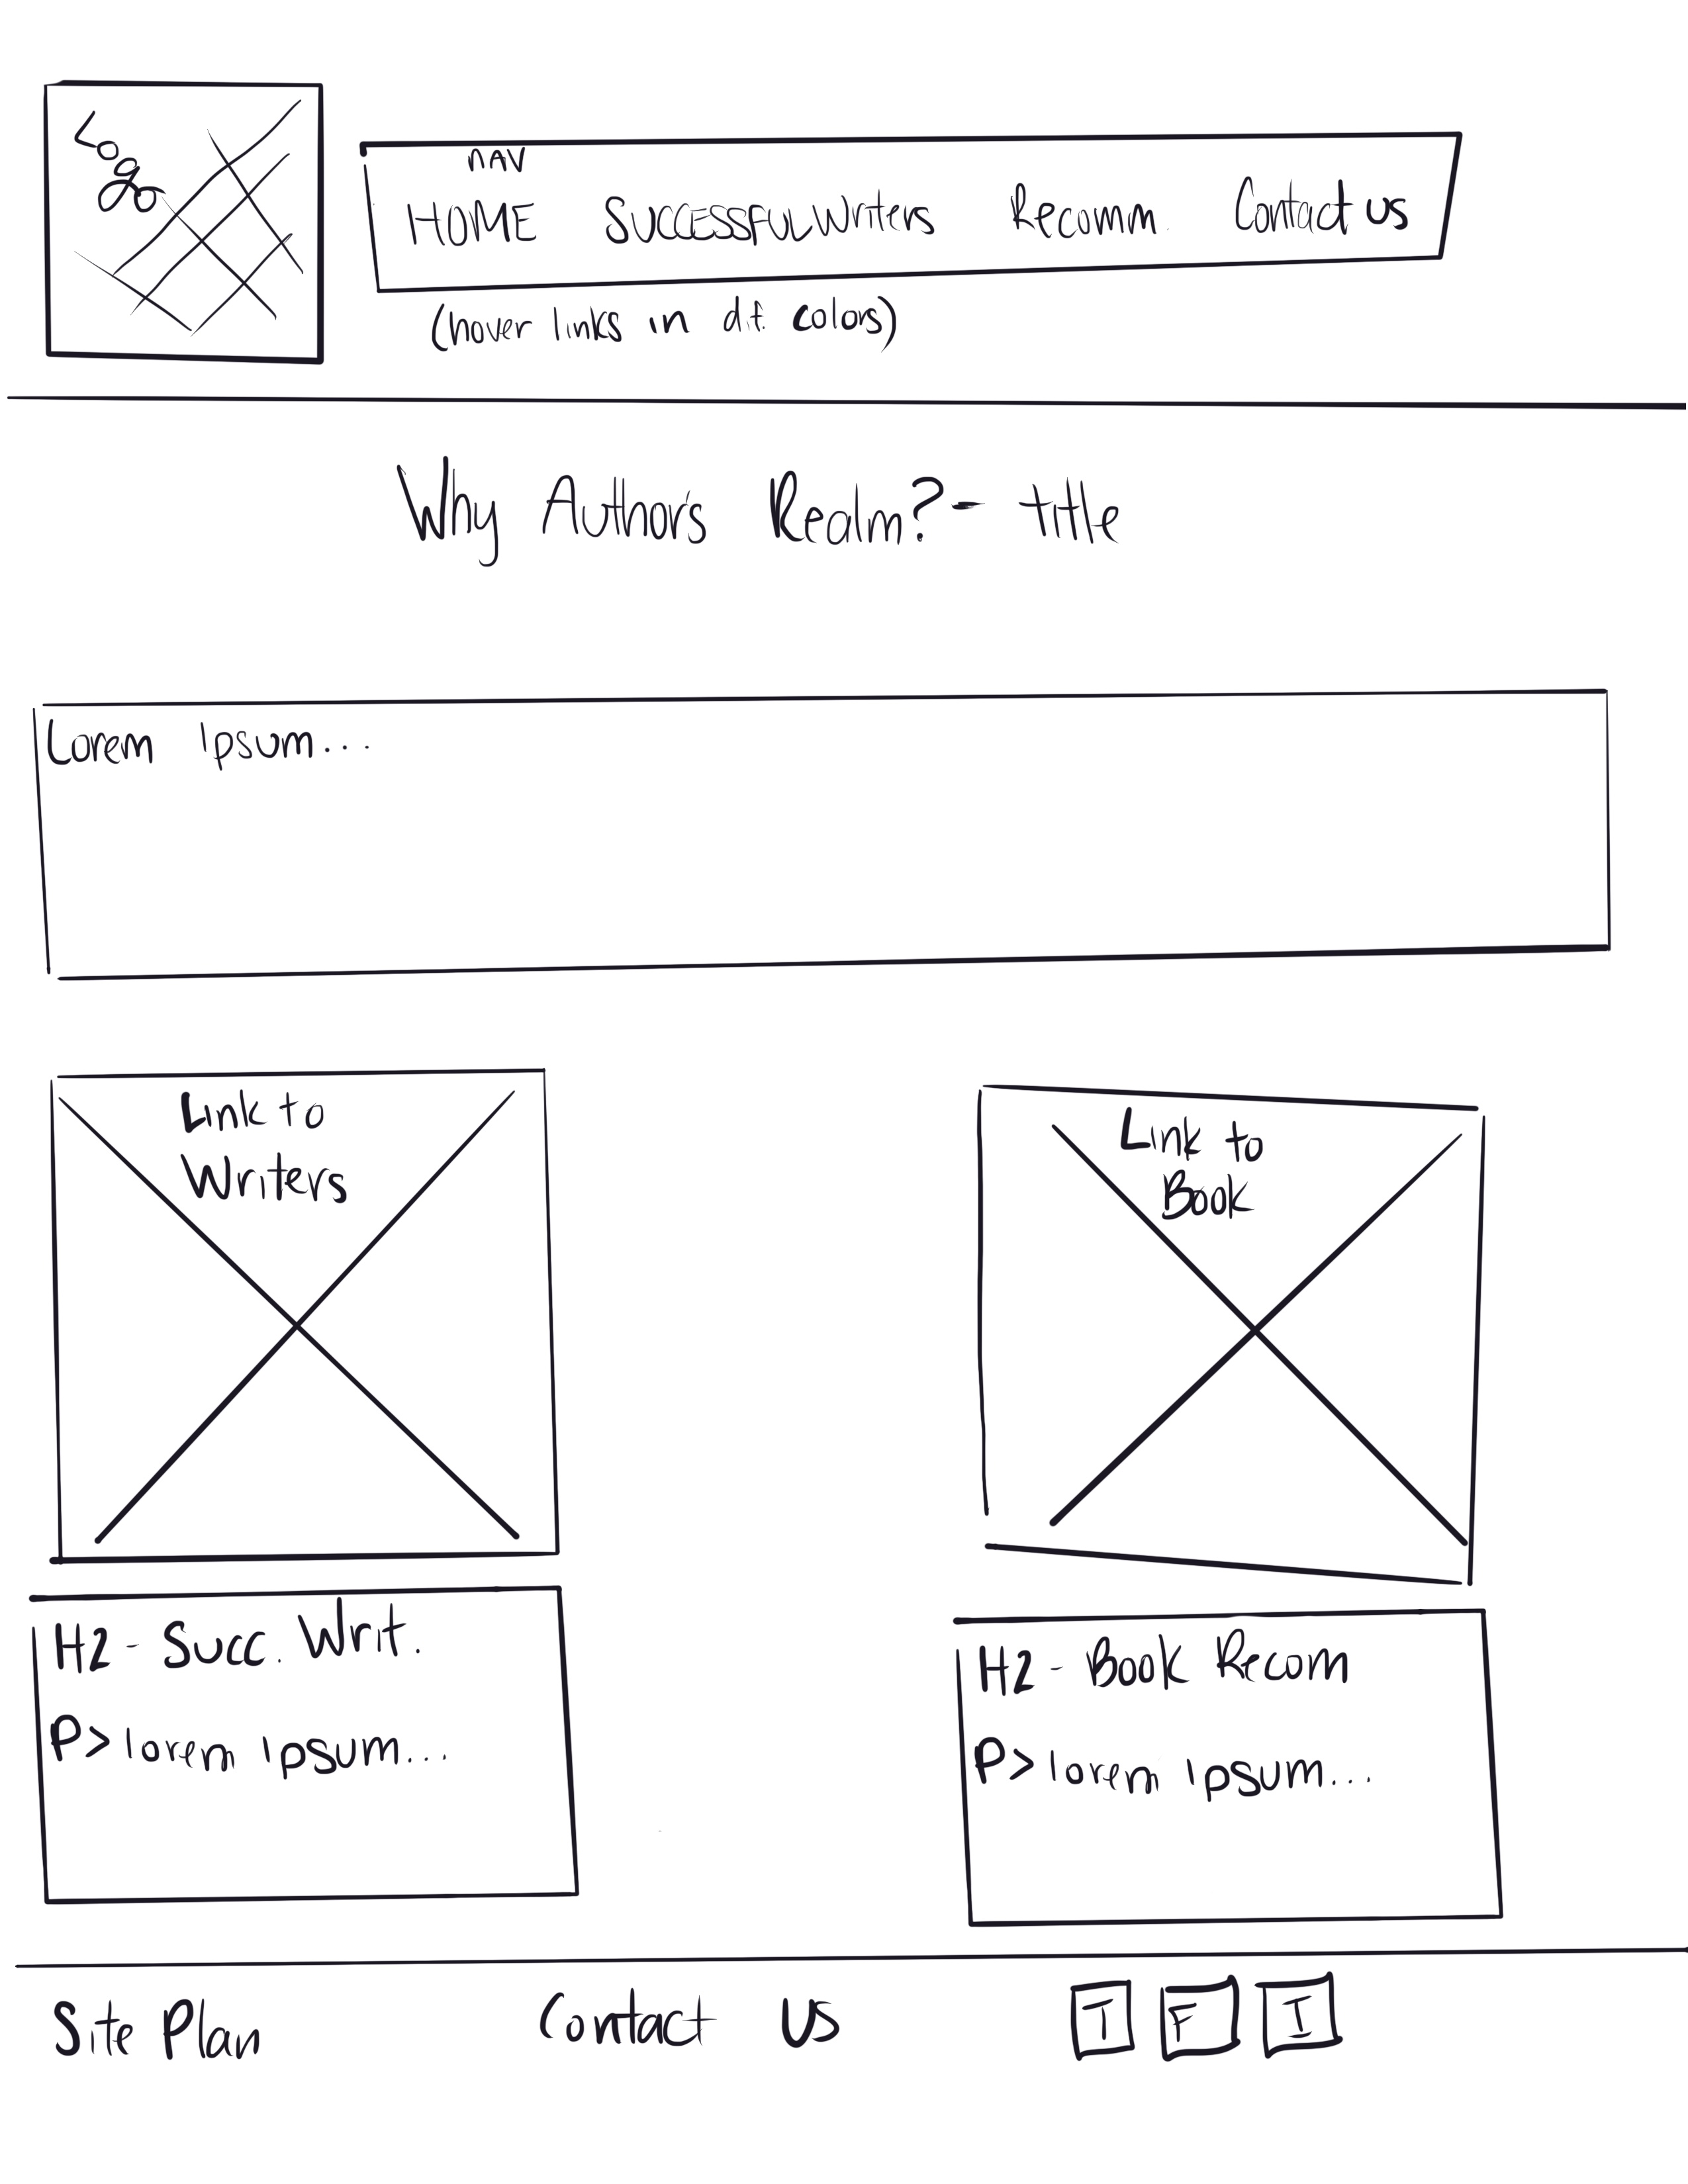 Logo
NAV
HOME Successful Writers Recomm. Contact us
(hover links in dif. colors)
Why Authors Realm? - title
Lorem Ipsum...
Link to
Writers
Link to
Book
H2 - Succ. Writ.
P> lorem ipsum...
H2 - Book Recom
P> lorem ipsum...
Site Plan Contact Us T F I